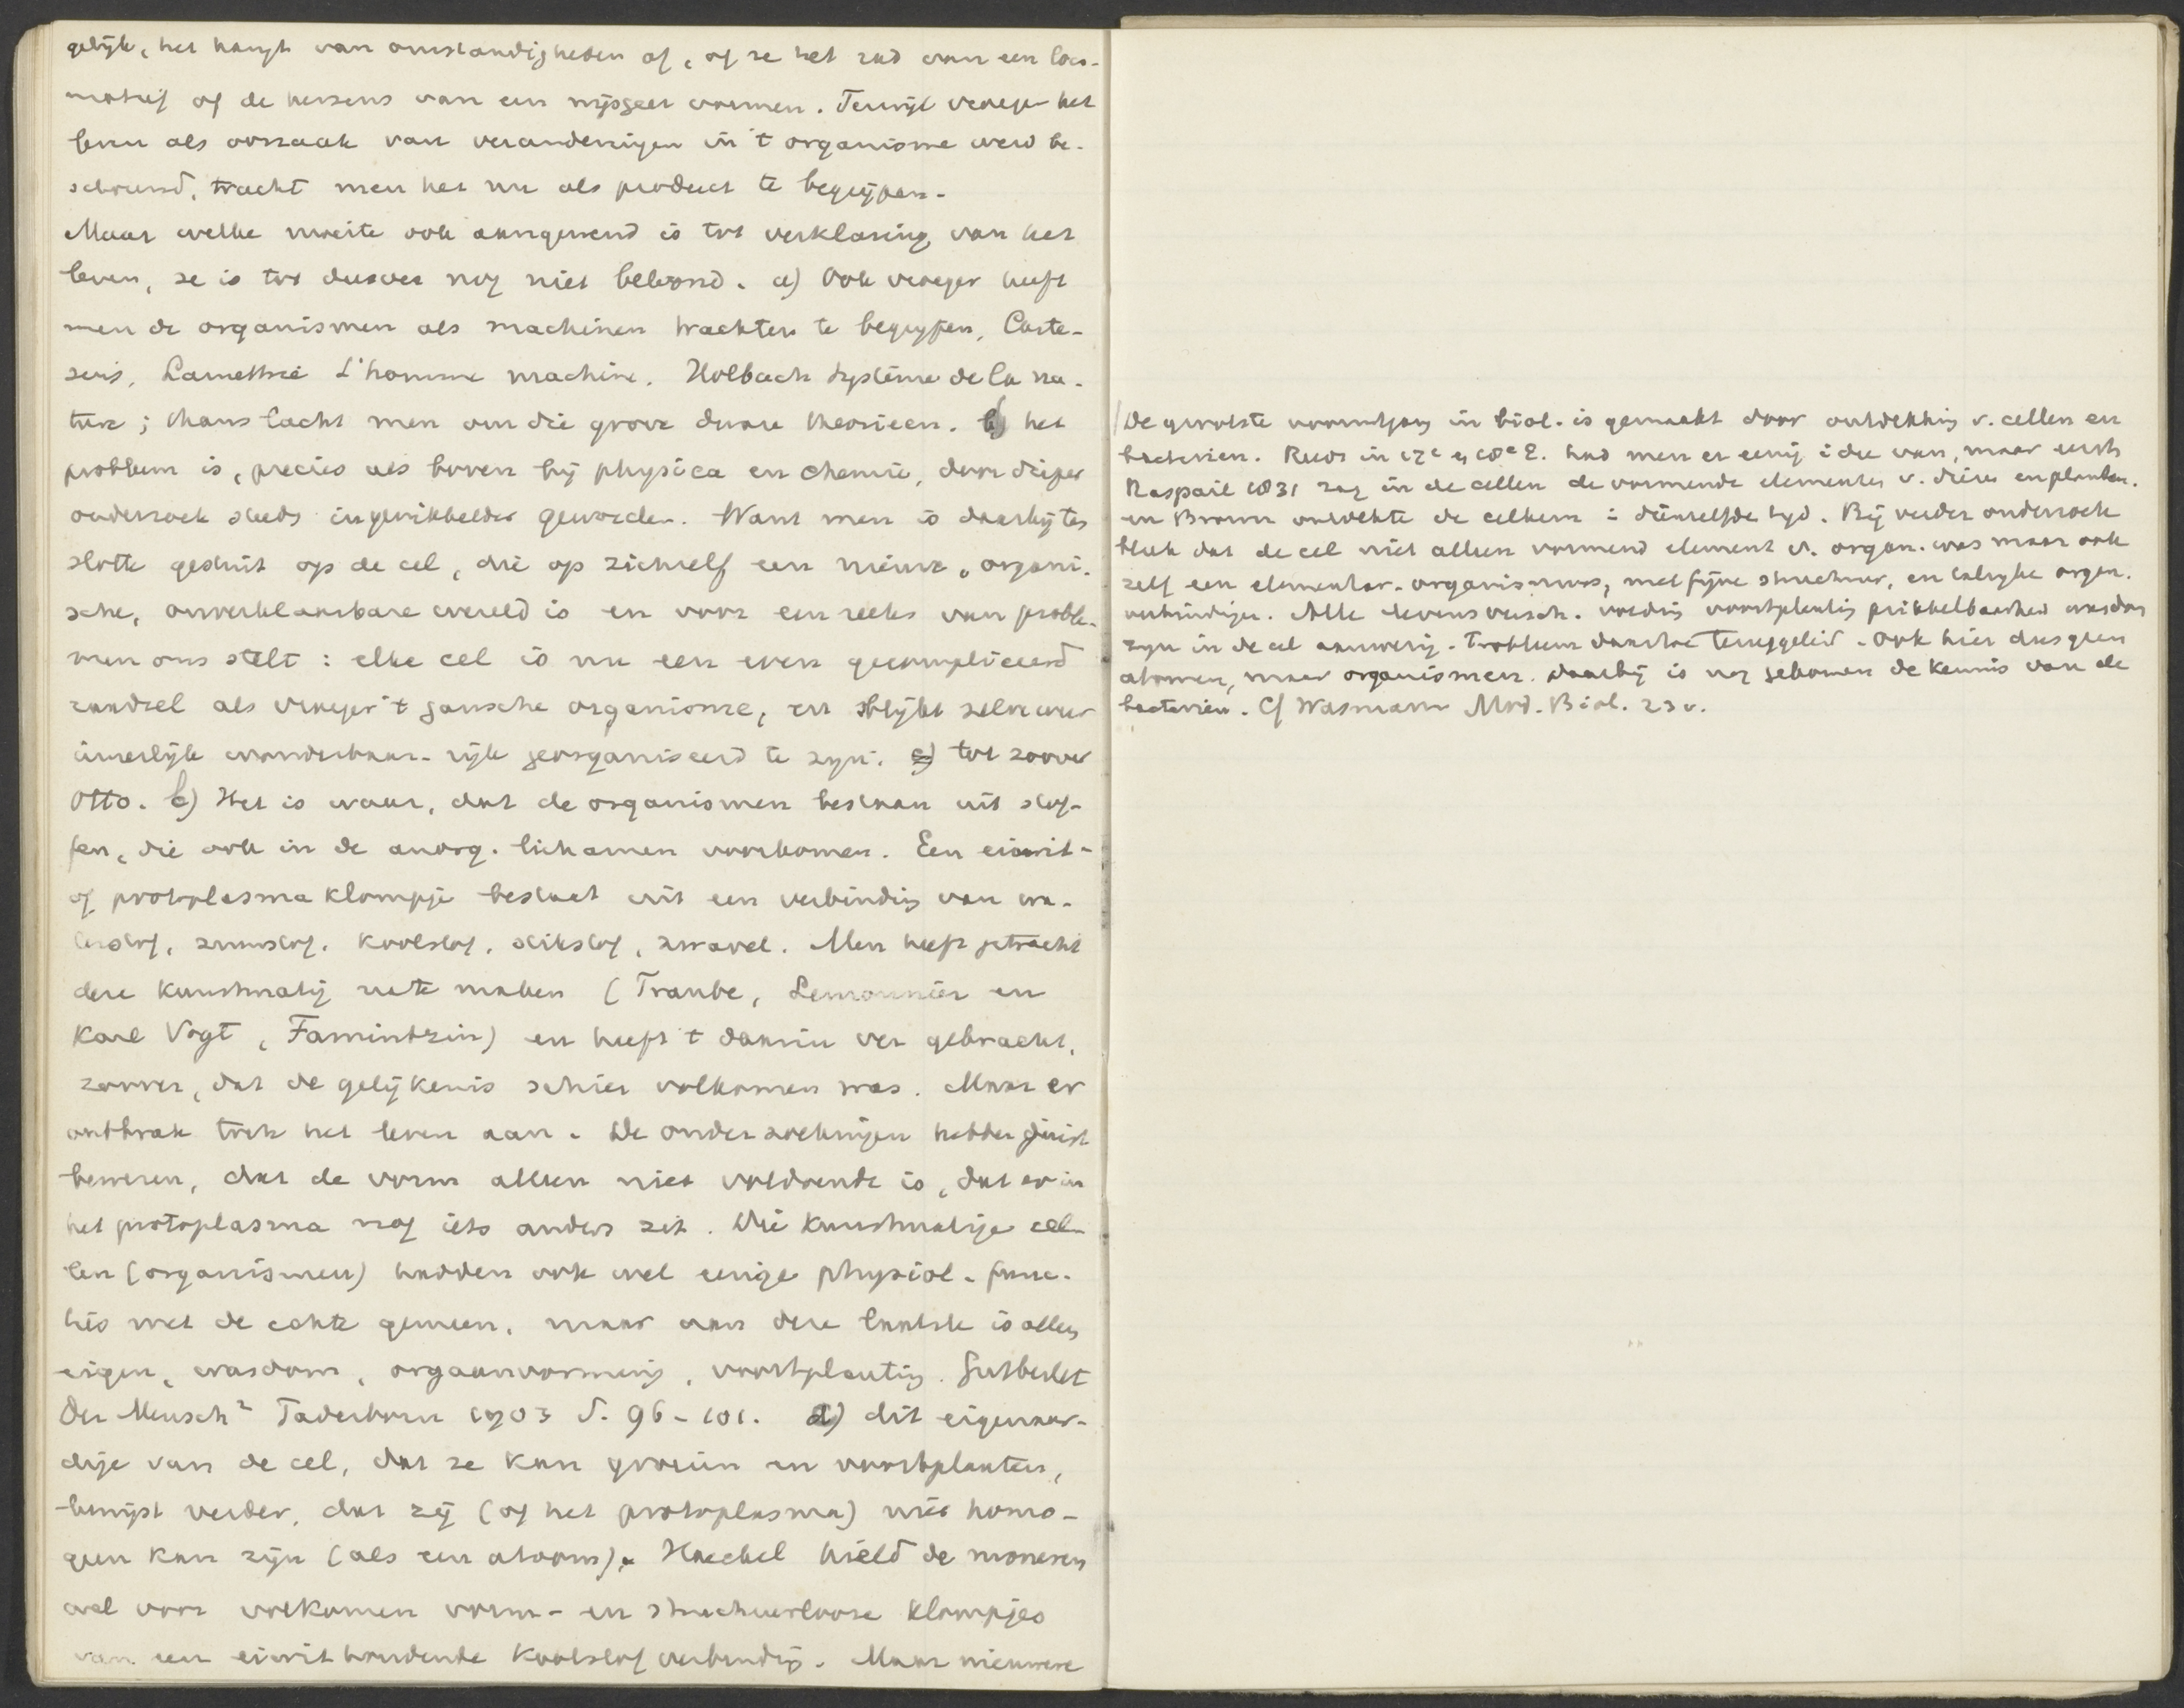 gelijk, het hangt van omstandigheden af, of ze het rad van een loco-
motief of de hersens van een wijsgeer vormen. Terwijl vroeger het
leven als oorzaak van veranderingen in 't organisme werd be-
schouwd, tracht men het nu als product te begrijpen.
Maar welke moeite ook aangewend is tot verklaring van het
leven, ze is tot dusver nog niet beloond. a) Ook vroeger heeft
men de organismen als machinen trachten te begrijpen, Carte-
sius, Lamettrie L'homme machine. Holbach Système de la na-
ture; thans lacht men om die grove dwaze theorieen. b) het
probleem is, precies als boven bij physica en chemie, door dieper
onderzoek steeds ingewikkelder geworden. Want men is daarbij ten
slotte gestuit op de cel, die op zichzelf een nieuwe, organi-
sche, onverklaarbare wereld is en voor een reeks van proble-
men ons stelt: elke cel is nu een even gecompliceerd
raadsel als vroeger 't gansche organisme, en blijkt zelve weer
innerlijk wonderbaar-rijk georganiseerd te zijn. c) tot zoover
Otto. b) Het is waar, dat de organismen bestaan uit stof-
fen, die ook in de anorg. lichamen voorkomen. Een eiwit-
of protoplasma klompje bestaat uit een verbinding van wa-
terstof, zuurstof, koolstof, stikstof, zwavel. Men heeft getracht
deze kunstmatig na te maken (Traube, Lemonnier en
Karl Vogt, Famintzin) en heeft 't daarin ver gebracht,
zoover, dat de gelijkenis schier volkomen was. Maar er
ontbrak toch het leven aan. De onderzoekingen hebben juist
bewezen, dat de vorm alleen niet voldoende is, dat er in
het protoplasma nog iets anders zit. Die kunstmatige cel-
len (organismen) hadden ook wel eenige physiol. func-
ties met de echte gemeen, maar aan deze laatste is alleen
eigen, wasdom, orgaanvorming, voortplanting. Gutberlet
Der Mensch² Paderborn 1903 S. 96-101. d) dit eigenaar-
dige van de cel, dat ze kan groeien en voortplanten,
bewijst verder, dat zij (of het protoplasma) niet homo-
geen kan zijn (als een atoom). Haeckel hield de moneren
wel voor volkomen vorm- en structuurlooze klompjes
van een eiwithoudende koolstofverbinding. Maar nieuwere
/De grootste vooruitgang in biol. is gemaakt door ontdekking v. cellen en
bacterien. Reeds in 17e en 18e E. had men er eenig idee van, maar eerst
Raspail 1831 zag in de cellen de vormende elementen v. dieren en planten.
en Brown ontdekte de celkern in diezelfde tijd. Bij verder onderzoek
bleek dat de cel niet alleen vormend element v. organ. was maar ook
zelf een elementar-organismus, met fijne structuur, en talrijke organ.
verbindingen. Alle levensversch. voeding voortplanting prikkelbaarheid wasdom
zijn in de cel aanwezig. Probleem daartoe teruggeleid. Ook hier dus geen
atomen, maar organismen. Daarbij is nog gekomen de kennis van de
bacterien. Cf Wasmann Mod. Biol. 23 v.